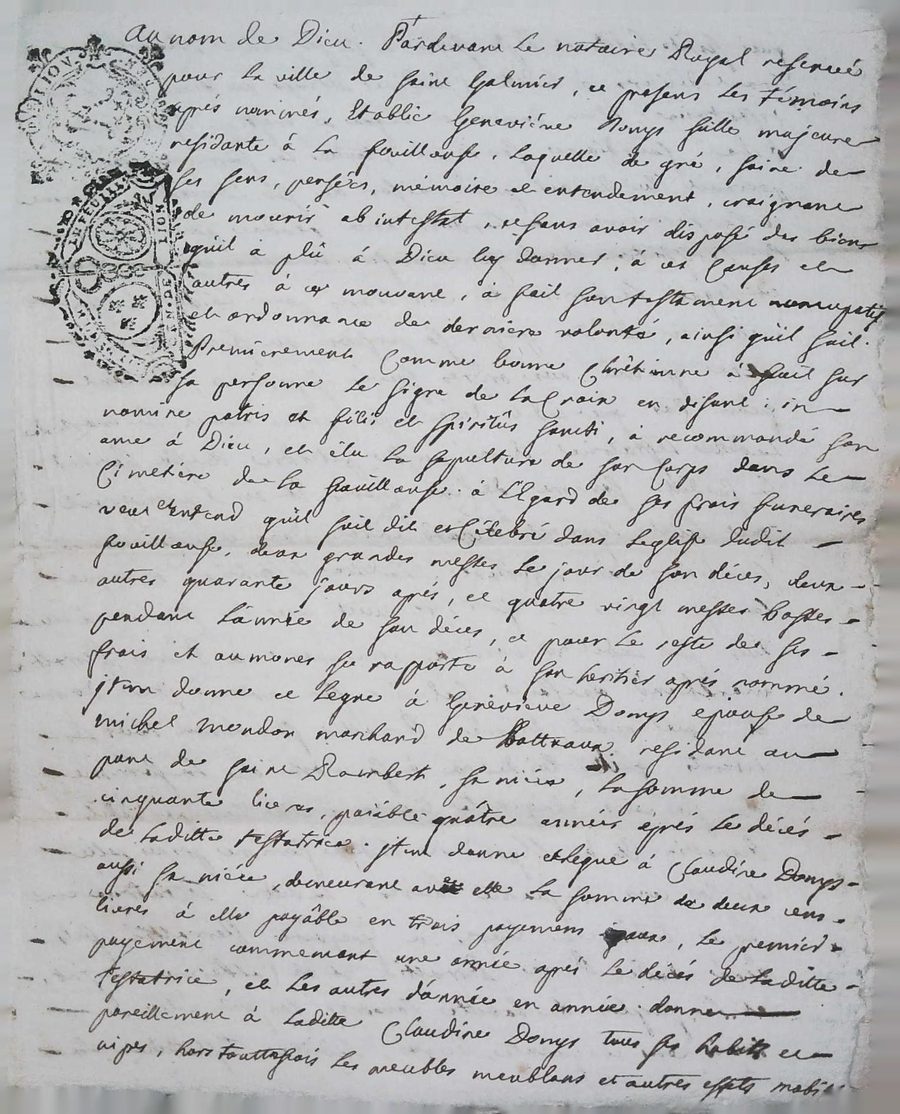 Au nom de Dieu. Pardevant le notaire Royal reservé
pour la ville de saint Galmier, ce presens les témoins
aprés nommés, Etablie Geneviéve Donys fille majeure
residante à la fouillouse, laquelle de gré, saine de
ses sens, pensées, mémoire et entendement, craignant
de mourir ab intestat, et sans avoir disposé des biens
qu'il à plû à Dieu luy donner, à ces causes et
autres à ce mouvant, à fait son testament nuncupatif
et ordonnance de derniere volonté, ainsi qu'il suit.
Premierement comme bonne Chrêtienne à fait sur
sa personne le signe de la Croix en disant: in
nomine patris et filii et spiritûs sancti, à recommandé son
ame à Dieu, et élu la sepulture de son Corps dans le
Cimetiére de la fouillouse. à l'Egard de ses frais funeraires
veut et entend qu'il soit dit et Célebré dans l'eglise dudit
fouillouse, deux grandes messes le jour de son décés, deux
autres quarante jours aprés, et quatre vingt messes basses
pendant l'année de son décés, et pour le reste de ses
frais et aumones s'en rapporte à son heritier aprés nommé.
jtem donne et legue à Geneviéve Donys epouse de
michel mondon marchand de Batteaux residant au
port de saint Rambert, sa niéce, la somme de
cinquante livres, païable quâtre années aprés le décés
de laditte testatrice. jtem donne et legue à Claudine Donys
aussi sa niéce, demeurant avec elle la somme de deux cens
livres à elle payâble en trois payemens egaux, le premier
payement commencant une année aprés le décés de laditte
testatrice, et les autres d'année en année. donne
pareillement à laditte Claudine Donys tous ses habits et
nipes, hors touttefois les meubles meublans et autres effets mobi